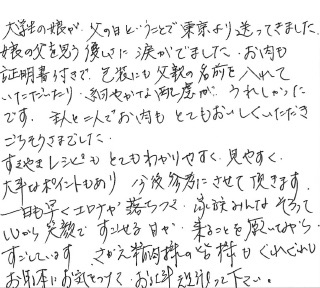 大学生の娘が、父の日ということで東京より送ってきました。
娘の父を思う優しさに涙がでました。お肉も
証明書付きで、包装にも父親の名前を入れて
いただいたり、細やかな配慮が、うれしかった
です。主人と二人でお肉もとてもおいしくいただき
ごちそうさまでした。
すきやきレシピもとてもわかりやすく、見やすく、
大事なポイントもあり、今後参考にさせて頂きます。
一日も早くコロナが落ちつく、家族みんなそろって
心から笑顔ですごせる日が、来ることを願いながら、
すごしています。さかえ精肉様の皆様もくれぐれも
お身体にお気をつけて、お仕事頑張って下さい。